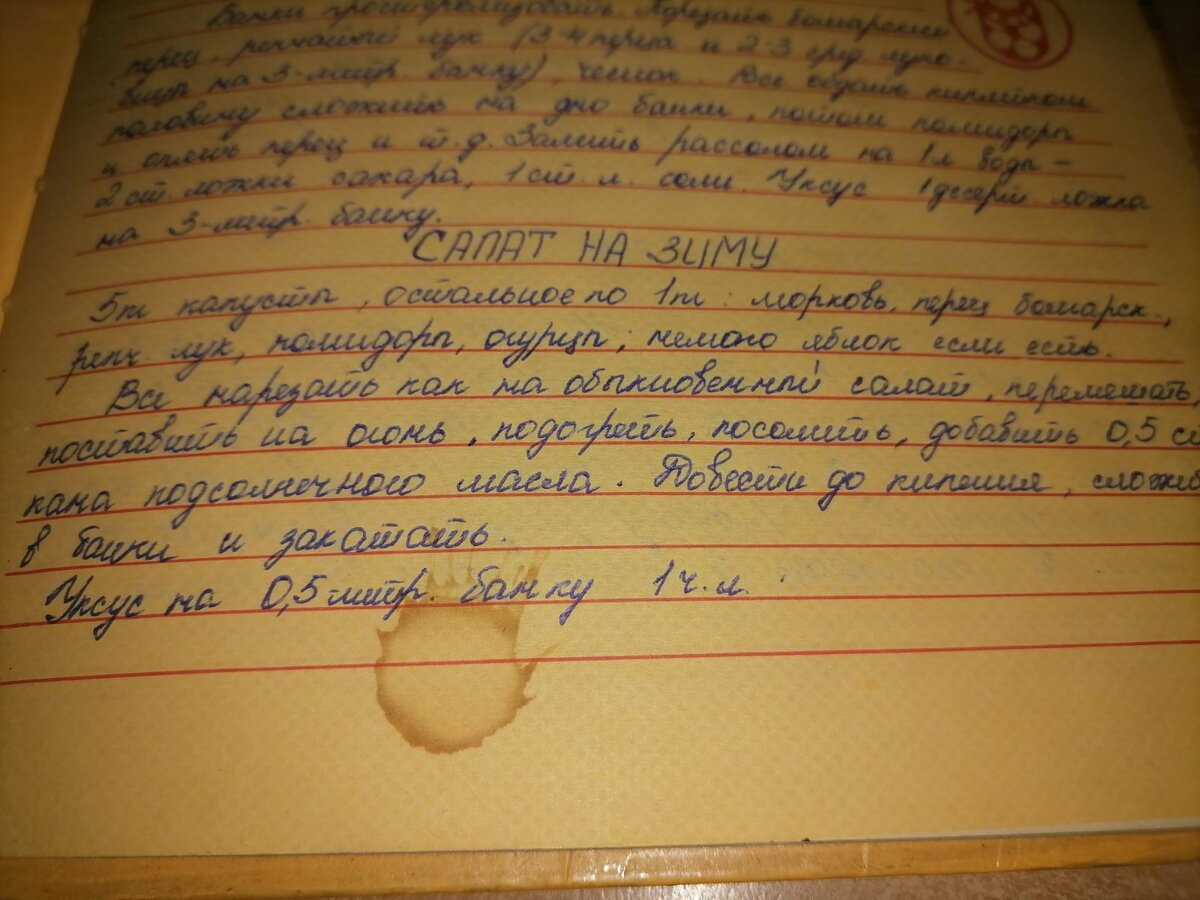 Банки простерилизовать. Порезать болгарский
перец, репчатый лук (3-4 перца и 2-3 сред. луко-
вицы на 3-литр. банку), чеснок. Все обдать кипятком
половину сложить на дно банки, потом помидоры
и опять перец и т.д. Залить рассолом на 1л воды –
2 ст. ложки сахара, 1 ст. л. соли. Уксус 1 десерт. ложка
на 3-литр. банку.
САЛАТ НА ЗИМУ
5т капусты, остальное по 1т: морковь, перец болгарск.,
репч. лук, помидоры, огурцы; немого яблок если есть.
Все нарезать как на обыкновенный салат, перемешать,
поставить на огонь, подогреть, посолить, добавить 0,5 ст
кана подсолнечного масла. Довести до кипения, сложив
в банки и закатать.
Уксус на 0,5 литр. банку 1 ч.л.